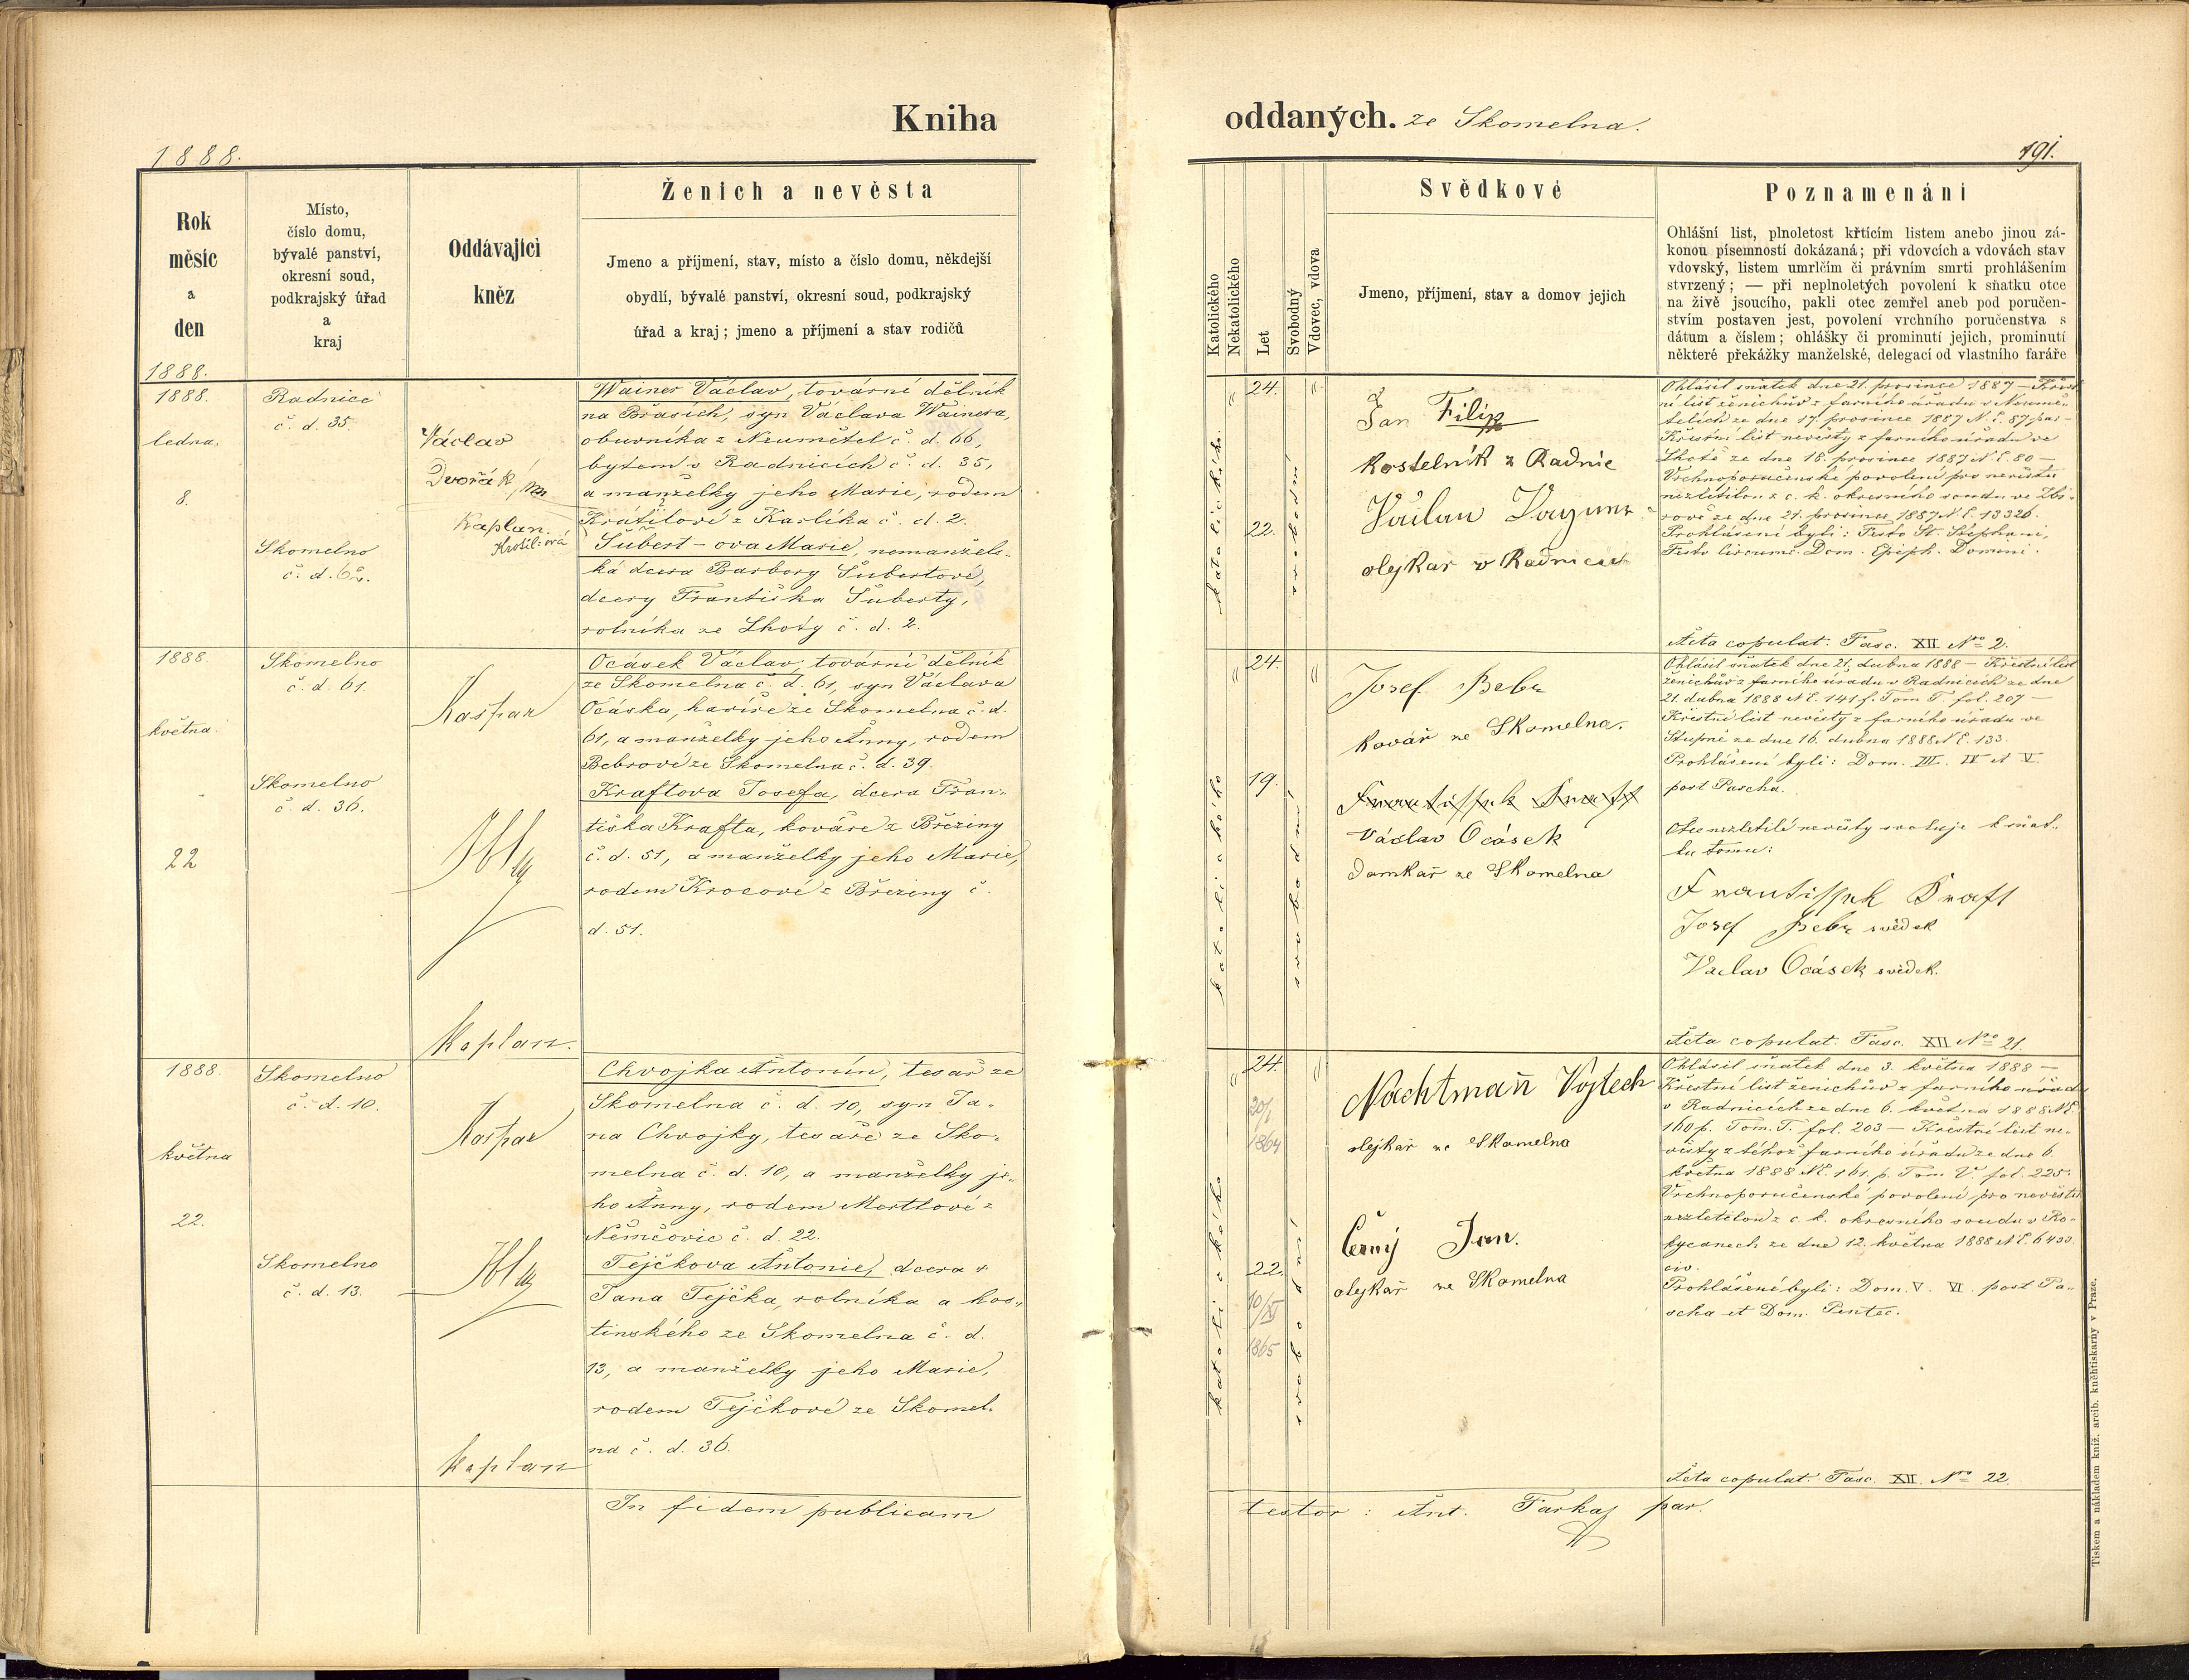 Kniha
oddaných. ze Skomelna.
1888.
191.
Rok
měsíc
a
den
Místo,
číslo domu,
bývalé panství,
okresní soud,
podkrajský úřad
a
kraj
Oddávající
kněz
Ženich a nevěsta
Jmeno a příjmení, stav, místo a číslo domu, někdejší
obydlí, bývalé panství, okresní soud, podkrajský
úřad a kraj; jmeno a příjmení a stav rodičů
Katolického
Nekatolického
Let
Svobodný
Vdovec, vdova
Svědkové
Jmeno, příjmení, stav a domov jejich
Poznamenání
Ohlášní list, plnoletost křtícím listem anebo jinou zá-
konou písemností dokázaná; při vdovcích a vdovách stav
vdovský, listem umrlčím či právním smrti prohlášením
stvrzený; — při neplnoletých povolení k sňatku otce
na živě jsoucího, pakli otec zemřel aneb pod poručen-
stvím postaven jest, povolení vrchního poručenstva s
dátum a číslem; ohlášky či prominutí jejich, prominutí
některé překážky manželské, delegací od vlastního faráře
1888.
1888.
ledna.
8.
Radnice
č. d. 35.
Skomelno
č. d.
Václav
Dvořák,
Kaplan.
Wainer Václav, tovární dělník
na Břasích, syn Václava Wainera,
obuvníka z Neumětel č. d. 66,
bytem v Radnicích č. d. 35,
a manželky jeho Marie, rodem
Krátilové z Karlíka č. d. 2.
Šubert-ova Marie, nemanžels-
ká dcera Barbory Šubertové,
dcery Františka Šuberty,
rolníka ze Lhoty č. d. 2.
katolického
24.
22.
svobodní
Jan Filip
kostelník z Radnic
olejkář v Radnicích
Ohlásil sňatek dne 21. prosince 1887 — Křest
ní list ženichův z farního úřadu v Neumě-
telích ze dne 17. prosince 1887 N. E. 87 par —
Křestní list nevěsty z farního úřadu ve
Lhotě ze dne 18. prosince 1887 N. E. 80 —
Vrchnoporučenské povolení pro nevěstu
nezletilou z c. k. okresního soudu ve Zbi-
rově ze dne 21. prosince 1887 N. E. 13326.
Prohlášení byli: Festo St. Stephani,
Festo Circumc. Dom. Epiph. Domini.
Acta copulat. Fasc. XII Nro 2.
1888.
května
22
Skomelno
č. d. 61.
Skomelno
č. d. 36.
Kašpar
Kaplan.
Ocásek Václav, tovární dělník
ze Skomelna č. d. 61, syn Václava
Ocáska, havíře ze Skomelna č. d.
61, a manželky jeho Anny, rodem
Bebrové ze Skomelna č. d. 39.
Kraftova Josefa, dcera Fran-
tiška Krafta, kováře z Březiny
č. d. 51, a manželky jeho Marie,
rodem Krocové z Březiny č.
d. 51.
katolického
24.
19.
svobodní
Josef Bebr
kovář ze Skomelna.
Frantisstek Kraft
Václav Ocásek
domkář ze Skomelna
Ohlásil sňatek dne 21. dubna 1888 — Křestní list
ženichův z farního úřadu v Radnicích ze dne
21. dubna 1888 N. E. 141 f. Tom T fol. 207 —
Křestní list nevěsty z farního úřadu ve
Stupně ze dne 16. dubna 1888 N. E. 133.
Prohlášení byli: Dom. III. IV et V.
post Pascha.
Otec nezletilé nevěsty svoluje k sňat-
ku tomu:
Frantissek Kraft
Josef Bebr svědek
Vaclav Ocásek svědek.
Acta copulat. Fasc. XII Nro 21.
1888.
května
22.
Skomelno
č. d. 10.
Skomelno
č. d. 13.
Kašpar
Kaplan
Chvojka Antonín, tesař ze
Skomelna č. d. 10, syn Ja-
na Chvojky, tesaře ze Sko-
melna č. d. 10, a manželky je-
ho Anny, rodem Martlové z
Němčovic č. d. 22.
Tejčkova Antonie, dcera
Jana Tejčka, rolníka a hos-
tinského ze Skomelna č. d.
13, a manželky jeho Marie,
rodem Tejčkové ze Skomel-
na č. d. 36.
katolického
24.
20/1
1864
22.
10/XI
1865
svobodní
Nachtman Vojtech
olejkář ze Skomelna
Černý Jan.
olejkář ze Skomelna
Ohlásil sňatek dne 3. května 1888 —
Křestní list ženichův z farního úřadu
v Radnicích ze dne 6. května 1888 N. E.
160 p. Tom. T. fol. 203 — Křestní list ne-
věsty z téhož farního úřadu ze dne 6.
května 1888 N. E. 161. p. Tom V. fol. 225.
Vrchnoporučenské povolení pro nevěstu
nezletilou z c. k. okresního soudu v Ro-
kycanech ze dne 12. května 1888 N. E. 6433.
civ.
Prohlášení byli: Dom. V. VI. post Pa-
scha et Dom. Pentec.
Acta copulat. Fasc. XII. Nro 22.
In fidem publicam
testor: Ant. Farkaš par.
Tiskem a nákladem kníž. arcib. kněhtiskárny v Praze.